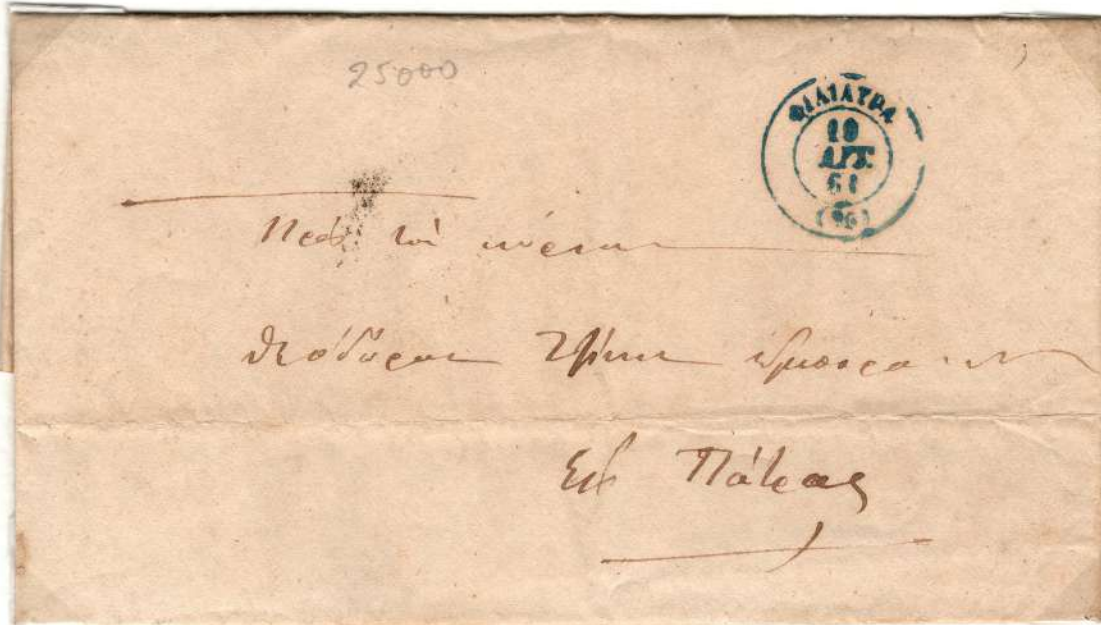 25000
ΦΙΛΙΑΤΡΑ
10
ΑΥΓ.
61
Πρὸς τὸν κύριον
Θεόδωρον
Εἰς Πάτρας